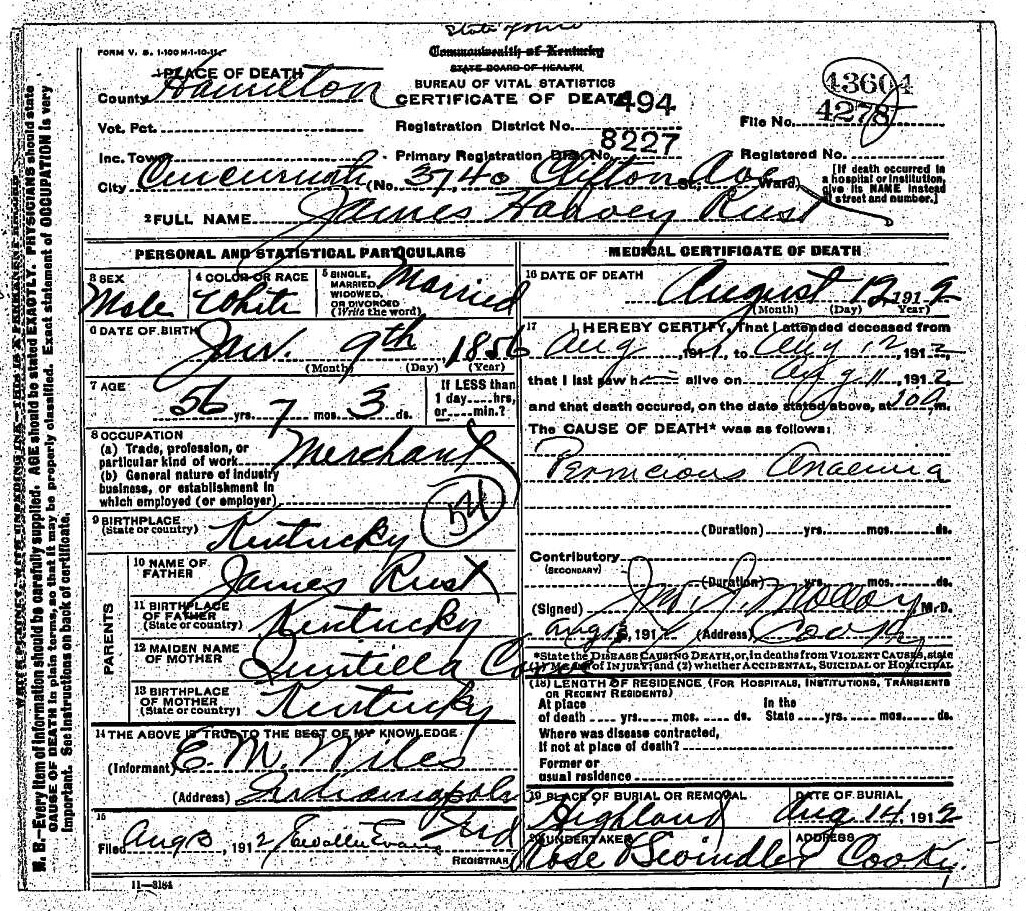 State of Ohio
FORM V. S. 1-100 M-1-10-11
Commonwealth of Kentucky
STATE BOARD OF HEALTH
BUREAU OF VITAL STATISTICS
CERTIFICATE OF DEATH
1 PLACE OF DEATH
County Hamilton
Vot. Pct.
Inc. Town
City Cincinnati (No. 3740 Clifton Ave St., Ward)
Registration District No. 494
Primary Registration Dist. No. 8227
43604
File No. 4278
Registered No.
[If death occurred in
a hospital or institution,
give its NAME instead
of street and number.]
2 FULL NAME James Harvey Rust
PERSONAL AND STATISTICAL PARTICULARS
3 SEX Male
4 COLOR OR RACE White
5 SINGLE, MARRIED, WIDOWED, OR DIVORCED (Write the word) Married
6 DATE OF BIRTH
Jan. 9th, 1856
(Month) (Day) (Year)
7 AGE
56 yrs. 7 mos. 3 ds.
If LESS than
1 day hrs,
or min.?
8 OCCUPATION
(a) Trade, profession, or
particular kind of work Merchant
(b) General nature of industry
business, or establishment in
which employed (or employer)
54
9 BIRTHPLACE
(State or country) Kentucky
PARENTS
10 NAME OF
FATHER James Rust
11 BIRTHPLACE
OF FATHER
(State or country) Kentucky
12 MAIDEN NAME
OF MOTHER Quintilla
13 BIRTHPLACE
OF MOTHER
(State or country) Kentucky
14 THE ABOVE IS TRUE TO THE BEST OF MY KNOWLEDGE
(Informant) E. M. Wiles
(Address) Indianapolis
Ind
15
Filed Aug 1912 Evans
REGISTRAR
11-3184
MEDICAL CERTIFICATE OF DEATH
16 DATE OF DEATH
August 12 1912
(Month) (Day) Year)
17 I HEREBY CERTIFY, That I attended deceased from
Aug 191, to Aug 12, 1912,
that I last saw h alive on Aug 11, 1912
and that death occured, on the date stated above, at m.
The CAUSE OF DEATH* was as follows:
Pernicious Anaemia
(Duration) yrs. mos. ds.
Contributory
(SECONDARY)
(Duration) yrs. mos. ds.
(Signed) Molloy M. D.
Aug 1912 (Address) Cov Ky
*State the DISEASE CAUSING DEATH, or, in deaths from VIOLENT CAUSES, state
(1) MEANS OF INJURY; and (2) whether ACCIDENTAL, SUICIDAL or HOMICIDAL
(18) LENGTH OF RESIDENCE (FOR HOSPITALS, INSTITUTIONS, TRANSIENTS
OR RECENT RESIDENTS)
At place In the
of death yrs. mos. ds. State yrs. mos. ds.
Where was disease contracted,
if not at place of death?
Former or
usual residence
19 PLACE OF BURIAL OR REMOVAL DATE OF BURIAL
Highland Aug 14, 1912
20 UNDERTAKER ADDRESS
Rose & Swindler Cov Ky.
N. B.—Every item of information should be carefully supplied. AGE should be stated EXACTLY. PHYSICIANS should state
CAUSE OF DEATH in plain terms, so that it may be properly classified. Exact statement of OCCUPATION is very
important. See instructions on back of certificate.